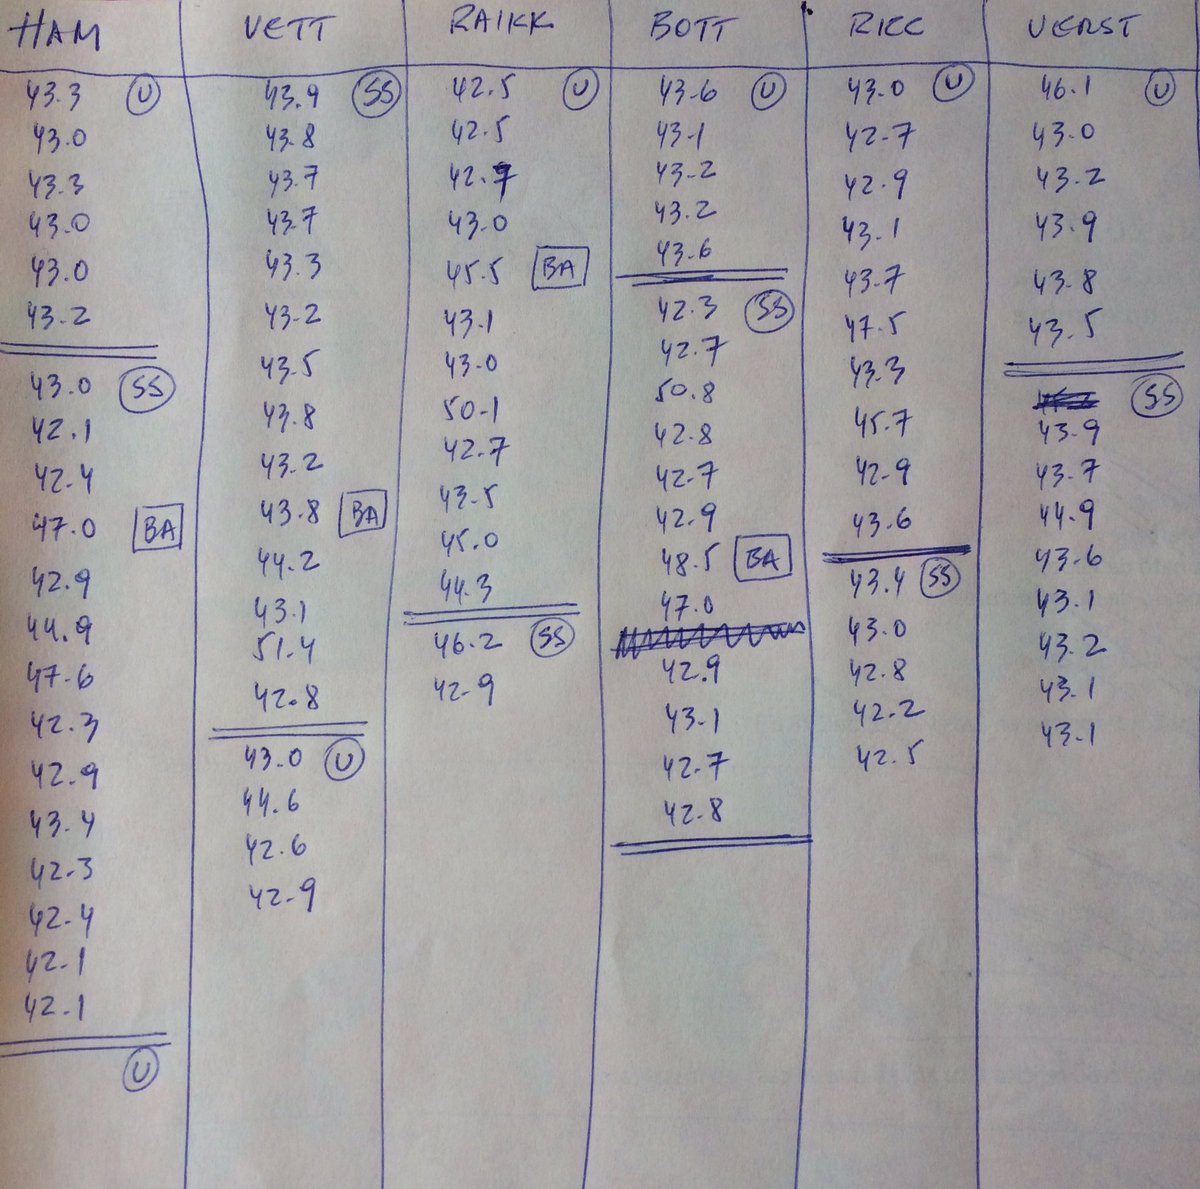 HAM
43.3 U
43.0
43.3
43.0
43.0
43.2
43.0 SS
42.1
42.4
47.0 BA
42.9
44.9
47.6
42.3
42.9
43.4
42.3
42.4
42.1
42.1
U
VETT
43.9 SS
43.8
43.7
43.7
43.3
43.2
43.5
43.8
43.2
43.8 BA
44.2
43.1
51.4
42.8
43.0 U
44.6
42.6
42.9
RAIKK
42.5 U
42.5
42.7
43.0
45.5 BA
43.1
43.0
50.1
42.7
43.5
45.0
44.3
46.2 SS
42.9
BOTT
43.6 U
43.1
43.2
43.2
43.6
42.3 SS
42.7
50.8
42.8
42.7
42.9
48.5 BA
47.0
42.9
43.1
42.7
42.8
RICC
43.0 U
42.7
42.9
43.1
43.7
47.5
43.3
45.7
42.9
43.6
43.4 SS
43.0
42.8
42.2
42.5
VERST
46.1 U
43.0
43.2
43.9
43.8
43.5
SS
43.9
43.7
44.9
43.6
43.1
43.2
43.1
43.1